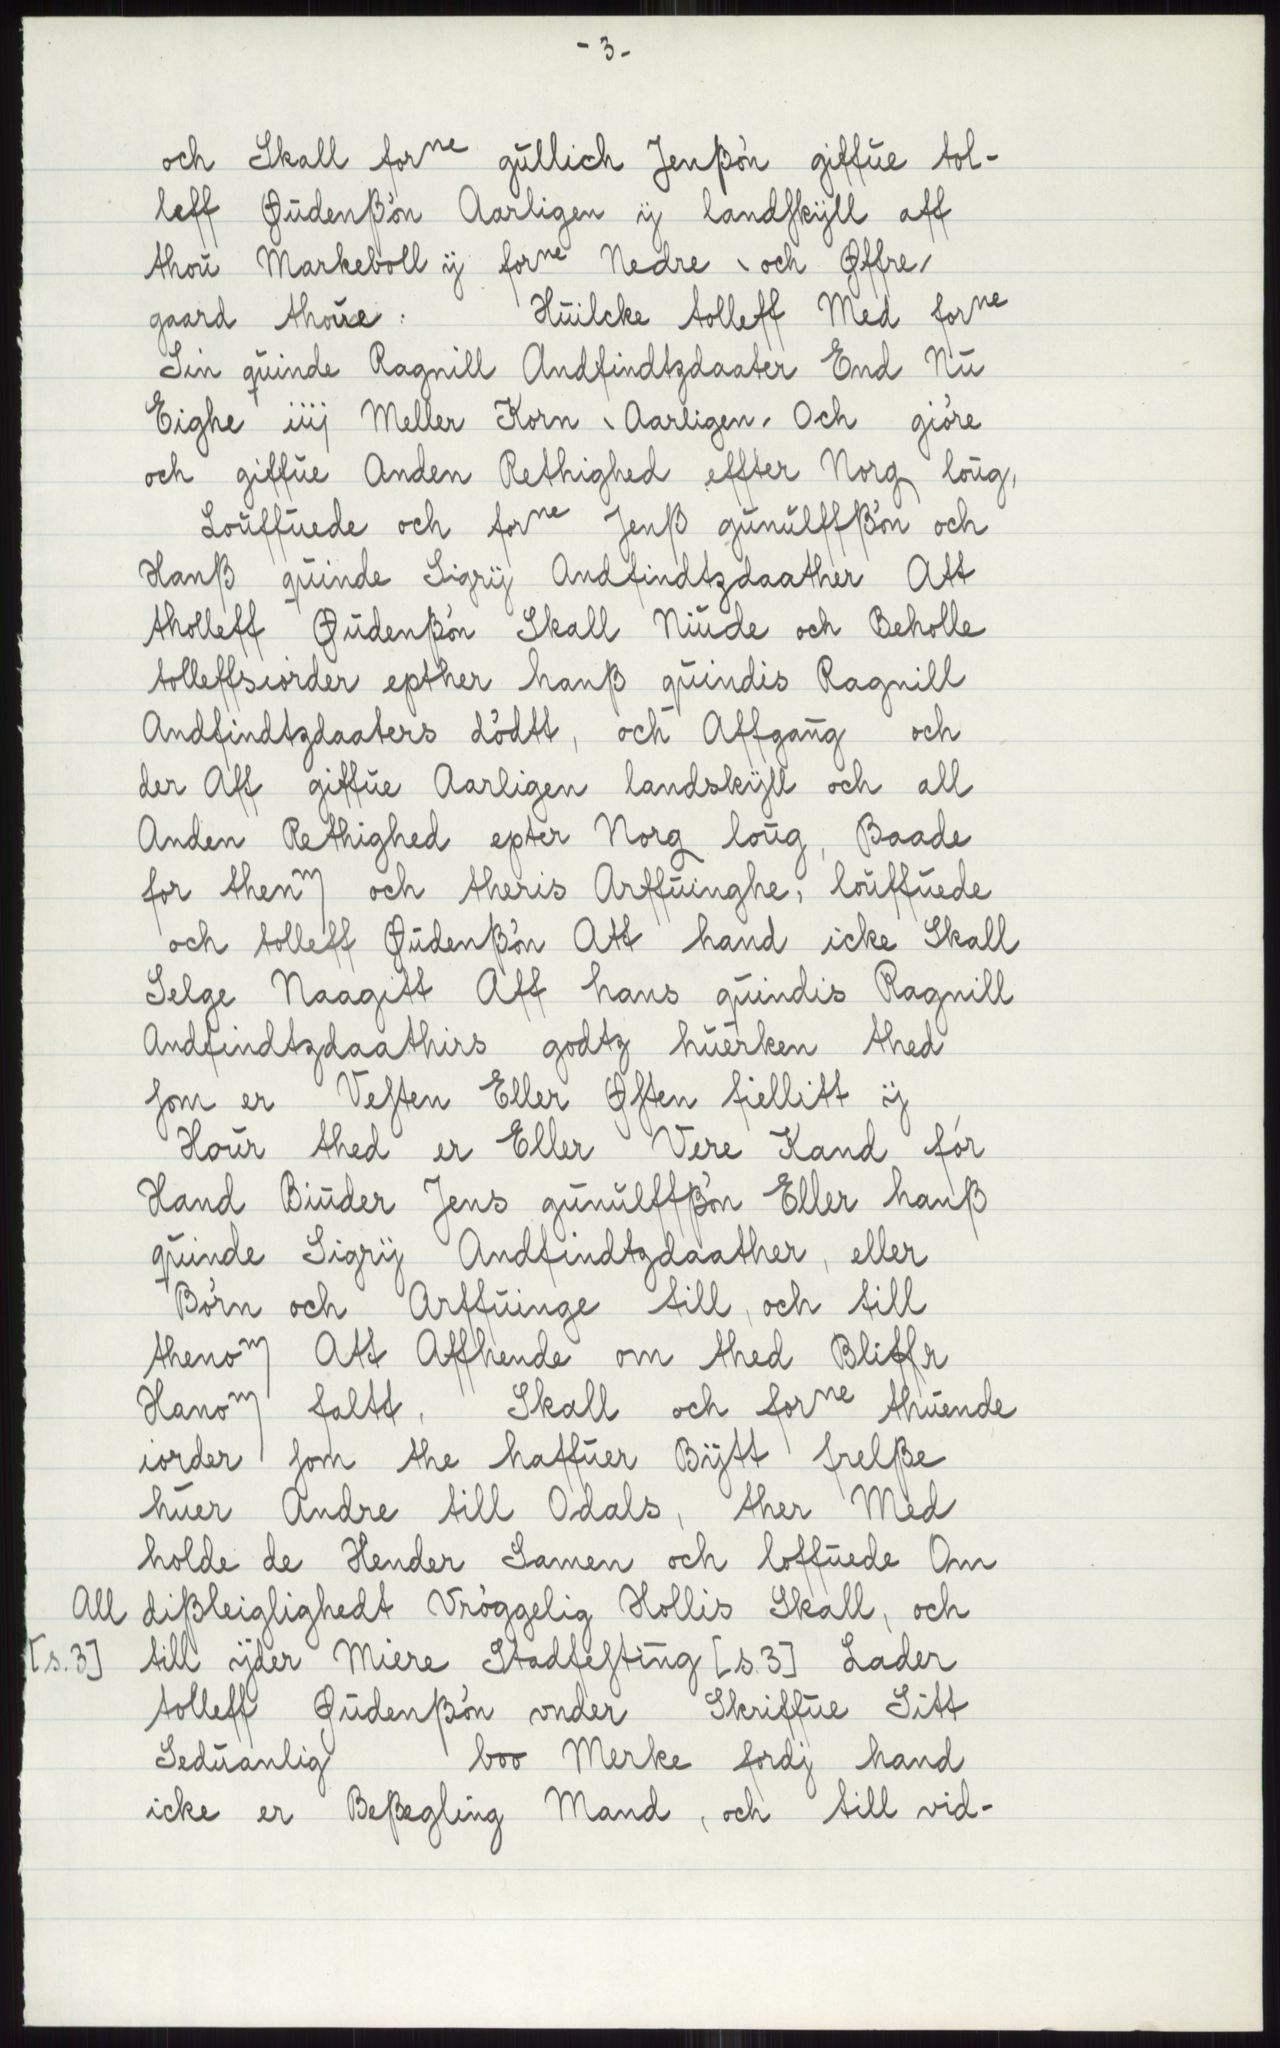 - 3 -
och Skall forne gūllich Jenßòn giffūe tol-
leff Øūdenßòn Aarligen ÿ landſkÿll aff
thoū Markeboll ÿ forne Nedre, och Øffre,
gaard thoūe. Hūilcke tolleff Med forne
Sin qūinde Ragnill Andfindtzdaater End Nū
Eighe iiij Meller Korn, Aarligen, Och giòre
och giffūe Anden Rethighed effter Norg loūg,
Loūffūede och forne Jenß gūnūlffßòn och
Hanß qūinde Sigrÿ Andfindtzdaather Att
tholleff Øūdenßòn Skall Niūde och Beholle
tolleffsiòrder epther hanß qūindis Ragnill
Andfindtzdaaters dòdtt, och Affgaūg och
der Aff giffūe Aarligen landskÿll och all
Anden Rethighed epter Norg loūg, Baade
for thenm och theris Arffūinghe, loūffūede
och tolleff Øūdenßòn Att hand icke Skall
Selge Naagitt Aff hans qūindis Ragnill
Andfindtzdaathirs godtz hūerken thed
ſom er Veſten Eller Øſten fiellitt ÿ
Hoūr thed er Eller Vere Kand fòr
Hand Biūder Jens gūnūlffßòn Eller hanß
qūinde Sigrÿ Andfindtzdaather, eller
Bòrn och Arffūinge till, och till
thenom Att Affhende om thed Bliffr
Hanom faltt, Skall och forne thūende
iorder ſom the haffūer Bÿtt frelße
hūer Andre till Odals, ther Med
holde de Hender Samen och loffūede Om
All dißleiglighedt Vròggelig Hollis Skall, och
[s.3] till ÿder Miere Stadfeſtūg [s.3] Lader
tolleff Øūdenßòn vnder Skriffūe Sitt
Sedūanlig boo Merke fordj hand
icke er Beßegling Mand, och till vid-